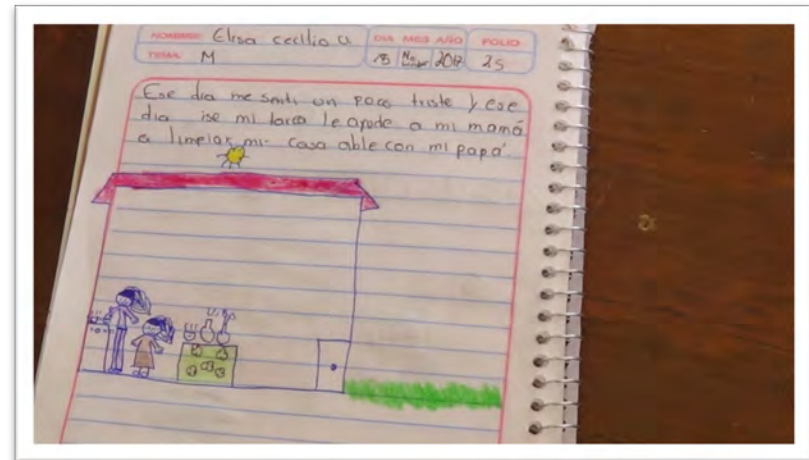 NOMBRE: Elisa cecilio G. DIA MES AÑO FOLIO
TEMA: M 2017 25
Ese dia me senti un poco triste y ese
dia ise mi tarea le ayude a mi mamá
a limpiar mi casa able con mi papá.